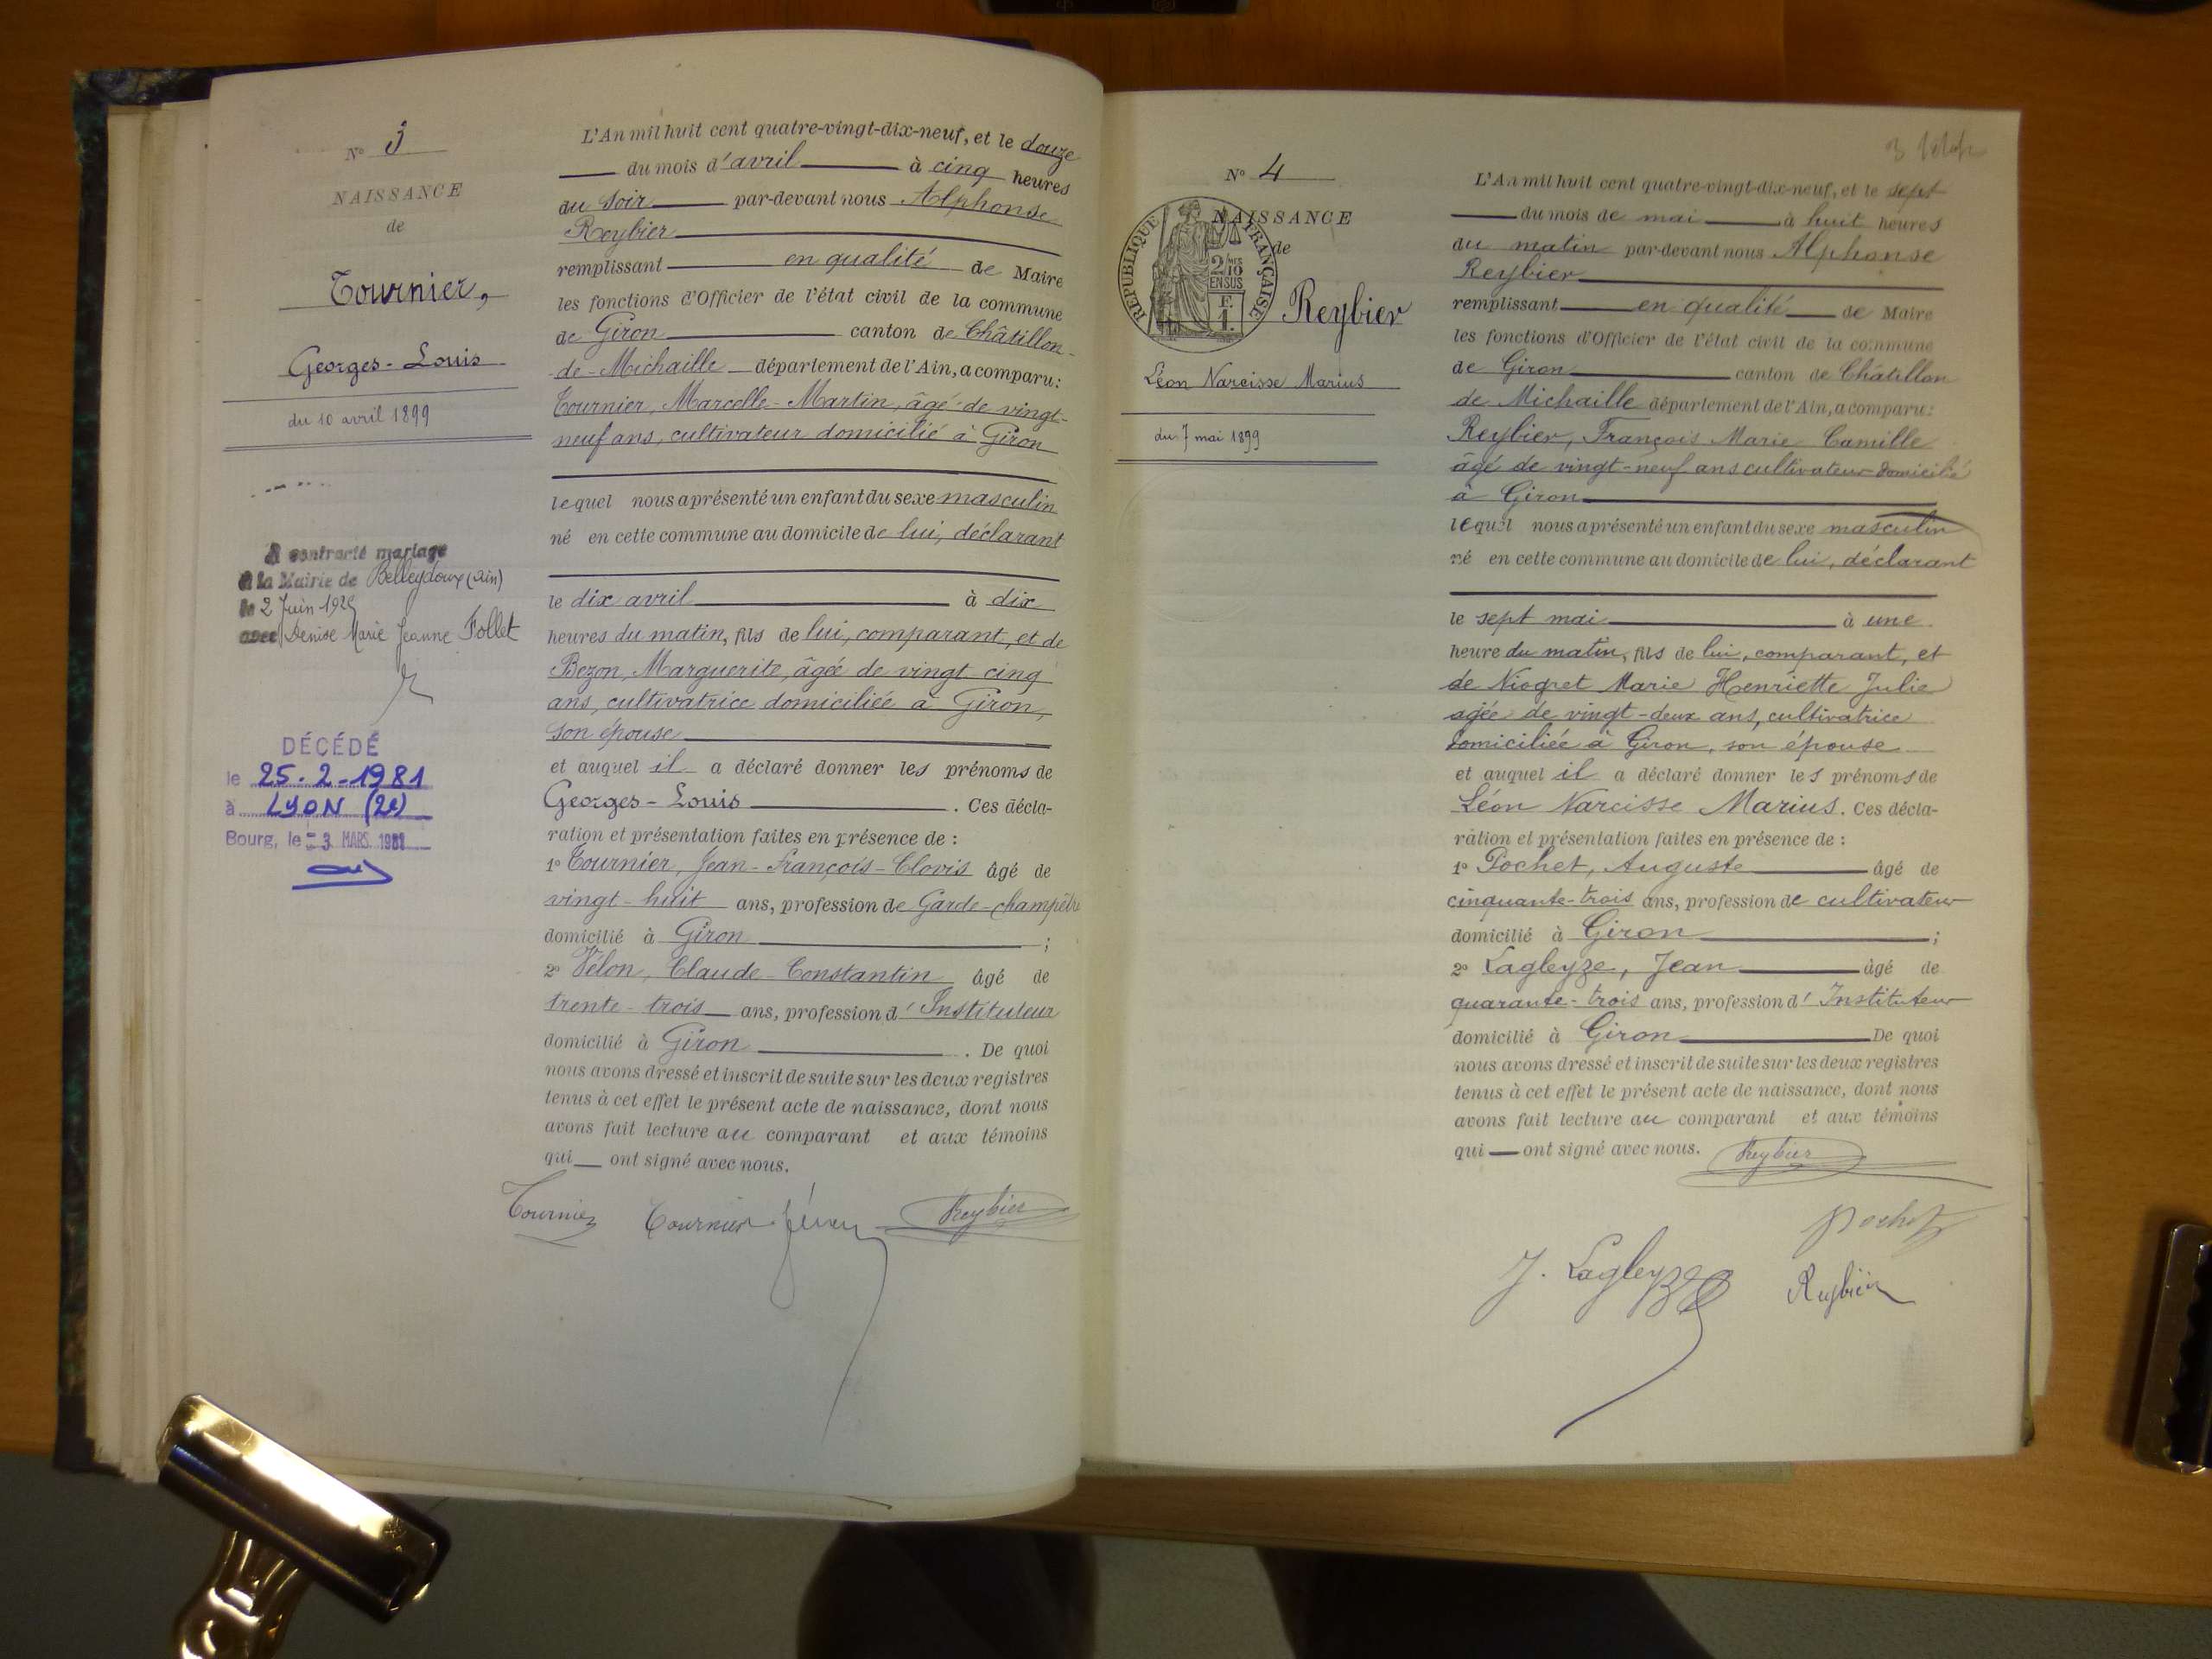 N° 3
NAISSANCE
de
Tournier,
Georges-Louis
du 10 avril 1899
A contracté mariage
à la Mairie de Belleydoux (Ain)
le 2 Juin
avec Denise Marie Jeanne Follet
DÉCÉDÉ
le 25-2-1981
à LYON (2e)
Bourg, le - 3 MARS 1981
L'An mil huit cent quatre-vingt-dix-neuf, et le douze
du mois d'avril à cinq heures
du soir par-devant nous Alphonse
Reybier
remplissant en qualité de Maire
les fonctions d'Officier de l'état civil de la commune
de Giron canton de Châtillon-
de-Michaille département de l'Ain, a comparu:
Tournier, Marcelle-Martin, âgé de vingt-
neuf ans, cultivateur domicilié à Giron
lequel nous a présenté un enfant du sexe masculin
né en cette commune au domicile de lui, déclarant
le dix avril à dix
heures du matin, fils de lui, comparant, et de
Bezon, Marguerite, âgée de vingt cinq
ans, cultivatrice domiciliée à Giron,
son épouse
et auquel il a déclaré donner les prénoms de
Georges-Louis. Ces décla-
ration et présentation faites en présence de :
1° Tournier, Jean-François-Clovis âgé de
vingt-huit ans, profession de Garde-champêtre
domicilié à Giron ;
2° Vélon, Claude-Constantin âgé de
trente-trois ans, profession d'Instituteur
domicilié à Giron. De quoi
nous avons dressé et inscrit de suite sur les deux registres
tenus à cet effet le présent acte de naissance, dont nous
avons fait lecture au comparant et aux témoins
qui ont signé avec nous.
Tournier Tournier Reybier
N° 4
NAISSANCE
de
RÉPUBLIQUE FRANÇAISE
2/10 MES
EN SUS
F.
1.
Reybier
Léon Narcisse Marius
du 7 mai 1899
L'An mil huit cent quatre-vingt-dix-neuf, et le sept
du mois de mai à huit heures
du matin par-devant nous Alphonse
Reybier
remplissant en qualité de Maire
les fonctions d'Officier de l'état civil de la commune
de Giron canton de Châtillon
de Michaille département de l'Ain, a comparu:
Reybier, François Marie Camille
âgé de vingt-neuf ans cultivateur domicilié
à Giron
lequel nous a présenté un enfant du sexe masculin
né en cette commune au domicile de lui, déclarant
le sept mai à une
heure du matin, fils de lui, comparant, et
de Niogret Marie Henriette Julie
agée de vingt-deux ans, cultivatrice
domiciliée à Giron, son épouse
et auquel il a déclaré donner les prénoms de
Léon Narcisse Marius. Ces décla-
ration et présentation faites en présence de :
1° Pochet, Auguste âgé de
cinquante-trois ans, profession de cultivateur
domicilié à Giron ;
2° Lagleyze, Jean âgé de
quarante-trois ans, profession d'Instituteur
domicilié à Giron De quoi
nous avons dressé et inscrit de suite sur les deux registres
tenus à cet effet le présent acte de naissance, dont nous
avons fait lecture au comparant et aux témoins
qui ont signé avec nous. Reybier
Pochet
J. Lagleyze Reybier